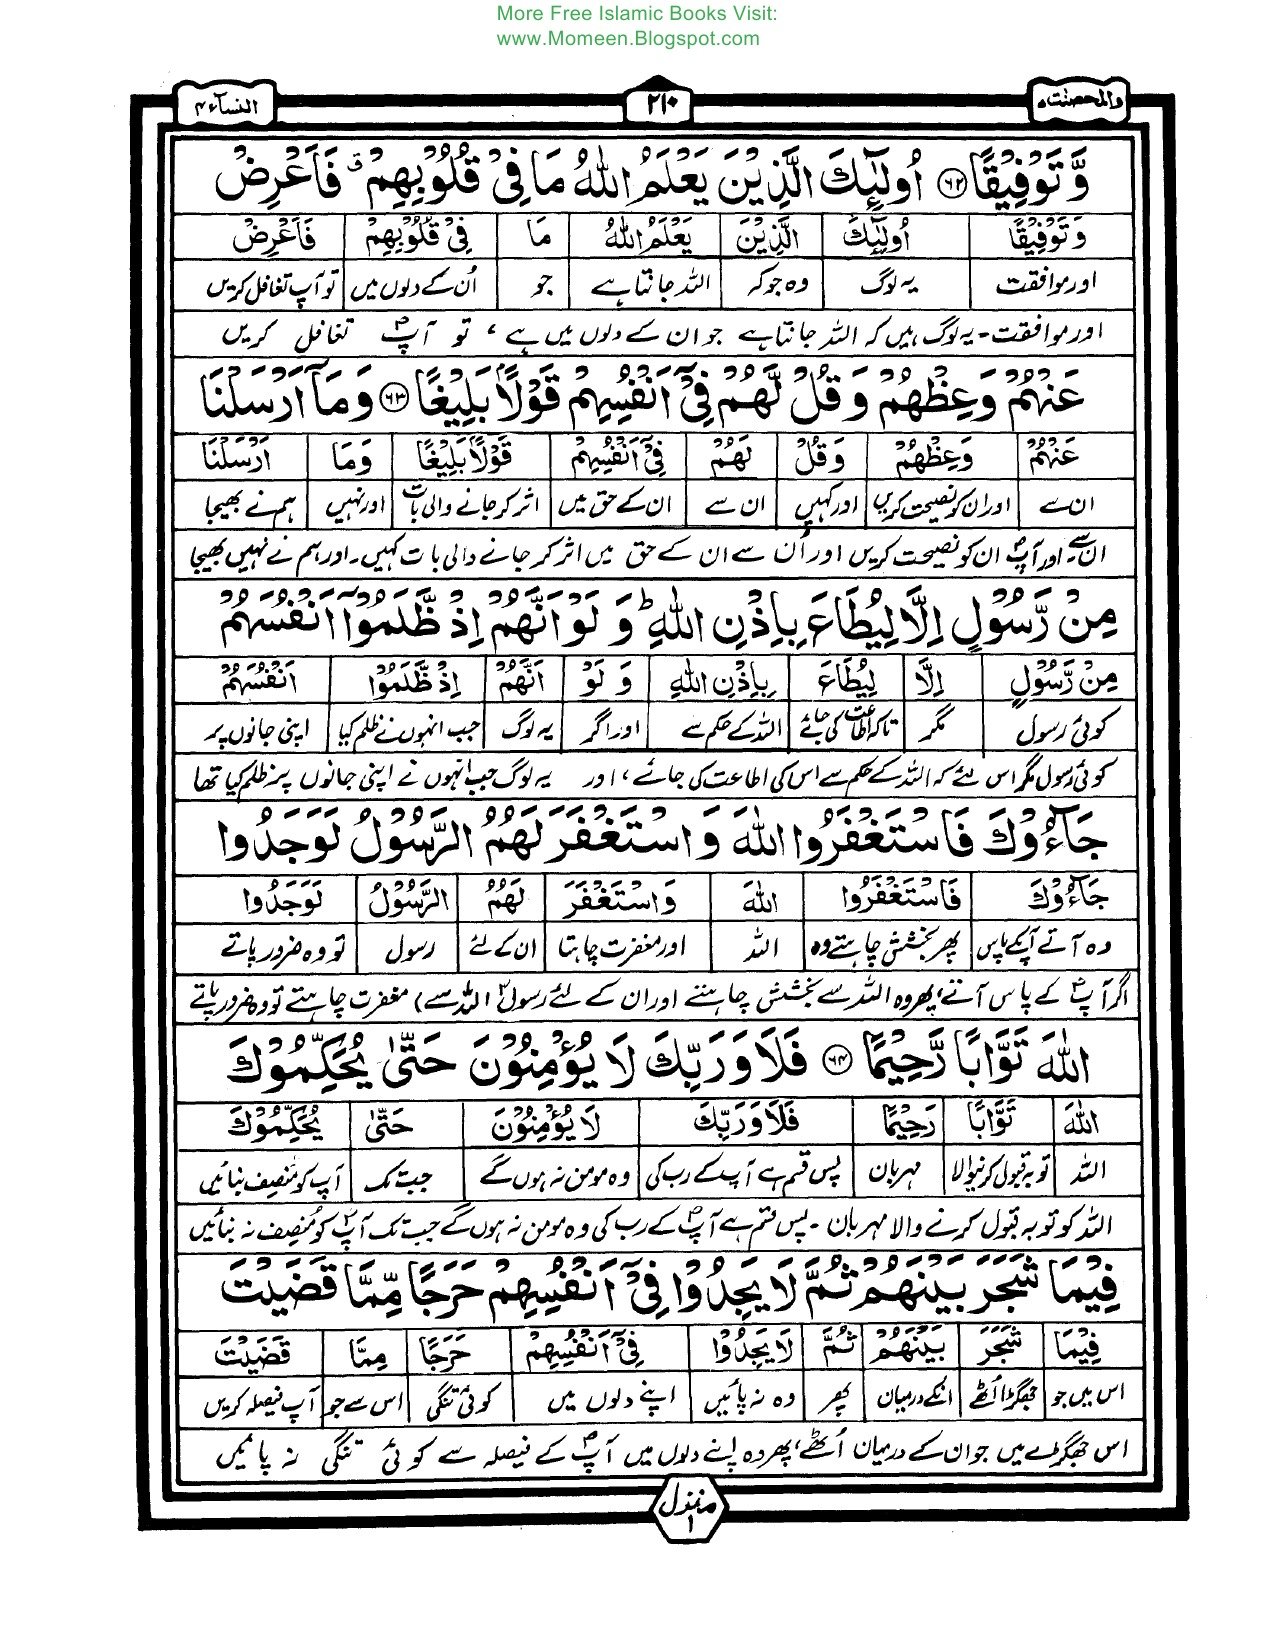 More Free Islamic Books Visit:
www.Momeen.Blogspot.com
والمحصنت ۵ ۲۱۰ النسآء ۴
وَّتَوْفِيْقًا ۶۲ اُولٰٓئِكَ الَّذِيْنَ يَعْلَمُ اللّٰهُ مَا فِيْ قُلُوْبِهِمْ ۗ فَاَعْرِضْ
وَتَوْفِيْقًا اُولٰٓئِكَ الَّذِيْنَ يَعْلَمُ اللّٰهُ مَا فِيْ قُلُوْبِهِمْ فَاَعْرِضْ
اور موافقت یہ لوگ وہ جو کہ اللہ جانتا ہے جو اُن کے دلوں میں تو آپ تغافل کریں
اور موافقت۔ یہ لوگ ہیں کہ اللہ جانتا ہے جو ان کے دلوں میں ہے ، تو آپؐ تغافل کریں
عَنْهُمْ وَعِظْهُمْ وَقُلْ لَّهُمْ فِيْٓ اَنْفُسِهِمْ قَوْلًاۢ بَلِيْغًا ۶۳ وَمَآ اَرْسَلْنَا
عَنْهُمْ وَعِظْهُمْ وَقُلْ لَهُمْ فِيْٓ اَنْفُسِهِمْ قَوْلًاۢ بَلِيْغًا وَمَا اَرْسَلْنَا
ان سے اور ان کو نصیحت کریں اور کہیں ان سے ان کے حق میں اثر کر جانے والی بات اور نہیں ہم نے بھیجا
ان سے۔ اور آپؐ ان کو نصیحت کریں اور اُن سے ان کے حق میں اثر کر جانے والی بات کہیں۔ اور ہم نے نہیں بھیجا
مِنْ رَّسُوْلٍ اِلَّا لِيُطَاعَ بِاِذْنِ اللّٰهِ ؕ وَلَوْ اَنَّهُمْ اِذْ ظَّلَمُوْٓا اَنْفُسَهُمْ
مِنْ رَّسُوْلٍ اِلَّا لِيُطَاعَ بِاِذْنِ اللّٰهِ وَ لَوْ اَنَّهُمْ اِذْ ظَّلَمُوْٓا اَنْفُسَهُمْ
کوئی رسول مگر تاکہ اطاعت کی جائے اللہ کے حکم سے اور اگر یہ لوگ جب انہوں نے ظلم کیا اپنی جانوں پر
کوئی رسول مگر اس لئے کہ اللہ کے حکم سے اس کی اطاعت کی جائے ، اور یہ لوگ جب انہوں نے اپنی جانوں پر ظلم کیا تھا
جَآءُوْكَ فَاسْتَغْفَرُوا اللّٰهَ وَاسْتَغْفَرَ لَهُمُ الرَّسُوْلُ لَوَجَدُوا
جَآءُوْكَ فَاسْتَغْفَرُوا اللّٰهَ وَاسْتَغْفَرَ لَهُمُ الرَّسُوْلُ لَوَجَدُوا
وہ آتے آپکے پاس پھر بخشش چاہتے وہ اللہ اور مغفرت چاہتا ان کے لئے رسول تو وہ ضرور پاتے
اگر آپؐ کے پاس آتے، پھر وہ اللہ سے بخشش چاہتے اور ان کے لئے رسولؐ (اللہ سے) مغفرت چاہتے تو وہ ضرور پاتے
اللّٰهَ تَوَّابًا رَّحِيْمًا ۶۴ فَلَا وَرَبِّكَ لَا يُؤْمِنُوْنَ حَتّٰى يُحَكِّمُوْكَ
اللّٰهَ تَوَّابًا رَحِيْمًا فَلَا وَرَبِّكَ لَا يُؤْمِنُوْنَ حَتّٰى يُحَكِّمُوْكَ
اللہ توبہ قبول کرنیوالا مہربان پس قسم ہے آپ کے رب کی وہ مومن نہ ہوں گے جب تک آپ کو منصف بنائیں
اللہ کو توبہ قبول کرنے والا مہربان ۔ پس قسم ہے آپؐ کے رب کی وہ مومن نہ ہوں گے جب تک آپؐ کو مُنصِف نہ بنائیں
فِيْمَا شَجَرَ بَيْنَهُمْ ثُمَّ لَا يَجِدُوْا فِيْٓ اَنْفُسِهِمْ حَرَجًا مِّمَّا قَضَيْتَ
فِيْمَا شَجَرَ بَيْنَهُمْ ثُمَّ لَا يَجِدُوْا فِيْٓ اَنْفُسِهِمْ حَرَجًا مِمَّا قَضَيْتَ
اس میں جو جھگڑا اُٹھے انکے درمیان پھر وہ نہ پائیں اپنے دلوں میں کوئی تنگی اس سے جو آپ فیصلہ کریں
اس جھگڑے میں جو ان کے درمیان اُٹھے، پھر وہ اپنے دلوں میں آپؐ کے فیصلہ سے کوئی تنگی نہ پائیں
منزل ۱